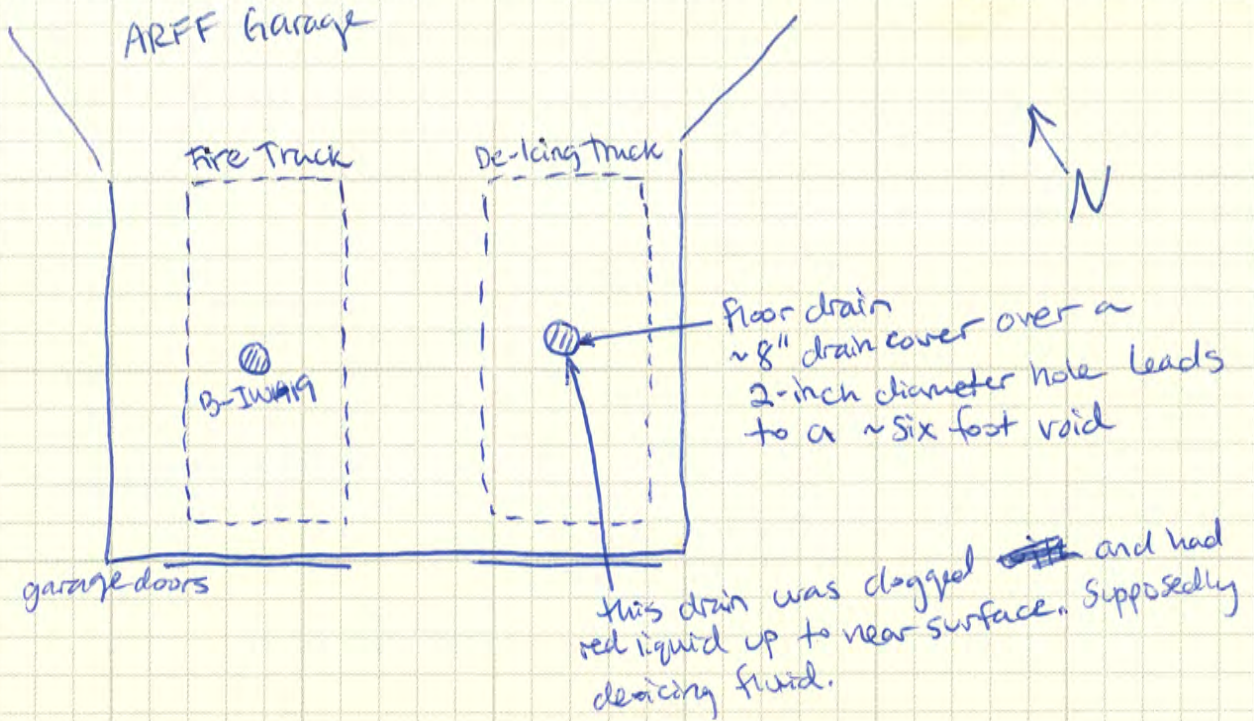 ARFF Garage
Fire Truck
De-Icing truck
N
floor drain
~8" drain cover over a
2-inch diameter hole leads
to a ~six foot void
garage doors
this drain was clogged and had
red liquid up to near surface. Supposedly
deicing fluid.